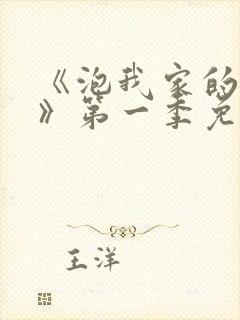 《泡我家的
》第一季免
王洋